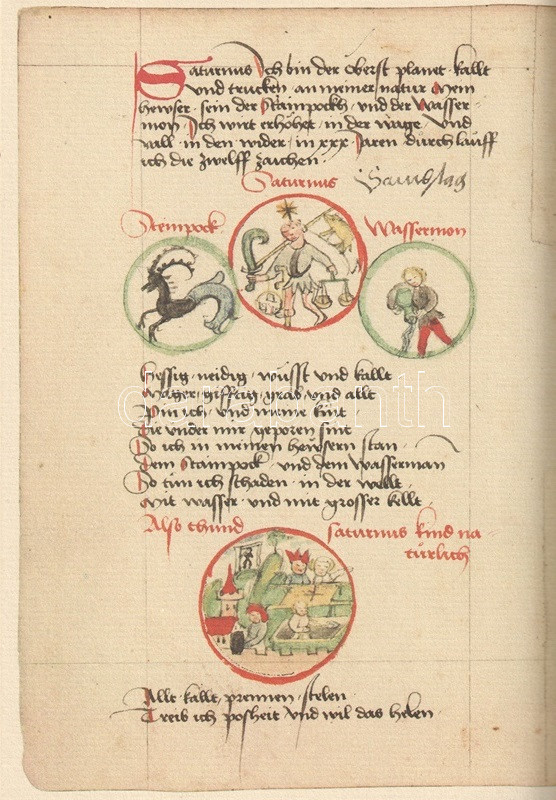 Saturnus Ich bin der oberst planet kallt
und trucken an meiner natur Mein
hewser sein der Stainpockh und der Wasser
mon Ich wirt erhöhet in der wage und
vall in den wider in xxx Jaren durch lauff
ich die zwelff zaichen
Saturnus Samstag
Stainpock Wassermon
hessig neidig wüsst und kallt
Mager gifftig grab und allt
Pin ich und meine kint
Die under mir geporen sint
So ich in meinen hewsern stan
Dem Stainpock und dem Wasserman
So tün ich schaden in der wellt
Mit wasser und mit grosser kellt
darabanth
Also thund saturnus kind na
türlich
Allt kallt prennen stelen
Treib ich posheit und wil das helen